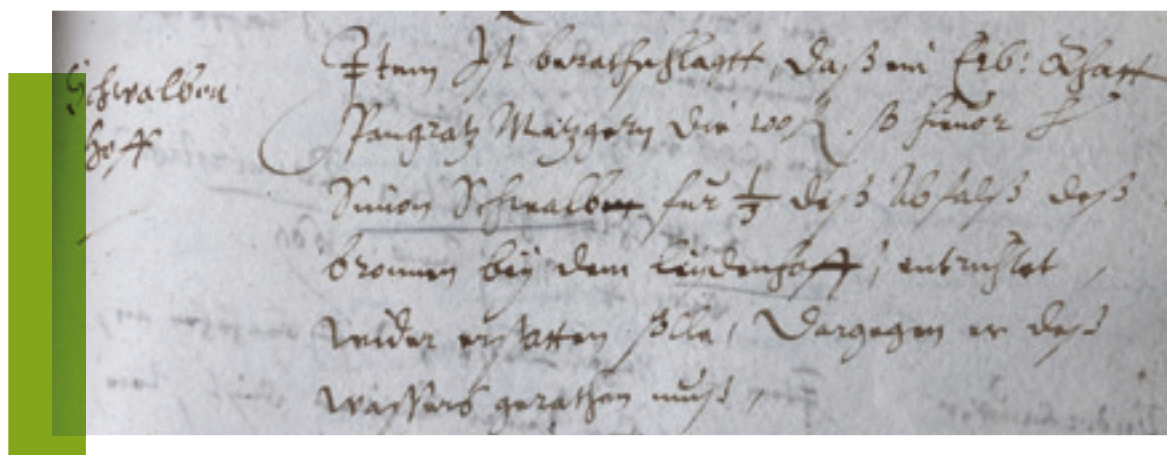 Schwalben
hoff
Item Ist berathschlagtt, daß ein Erb: Rhatt
Pangratz Metzgern die 100 fl. so hieuor H
Simon Schwalben für 1/3 deß Abfalß deß
bronnen bey dem Lindenhoff, entrichtet,
wider erstatten solle, Dargegen er deß
wassers gerathen muß,